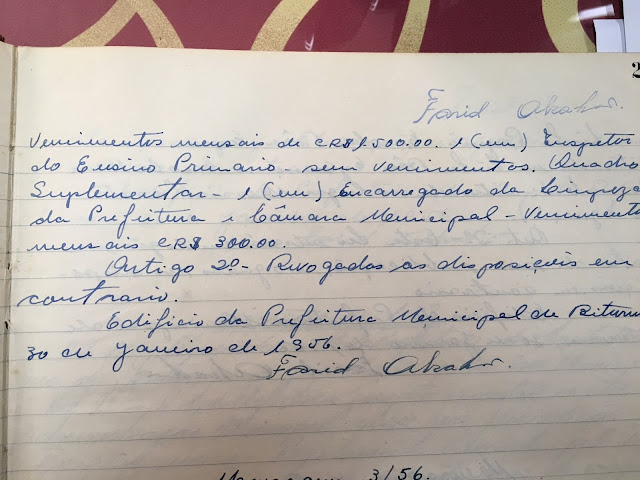 2
Farid Abrahão.
Vencimentos mensais de CR$1.500.00. 1 (um) Inspetor
do Ensino Primario - sem vencimentos. (Quadro
Suplementar - 1 (um) Encarregado da Limpeza
da Prefeitura e Câmara Municipal - Vencimento
mensais CR$ 300.00.
Artigo 2º - Revogados as disposições em
contrario.
Edificio da Prefeitura Municipal de Bituru
30 de Janeiro de 1956.
Farid
3/56.